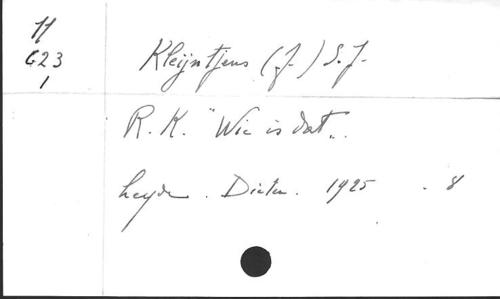 H
G23
1
Kleijntjens (J.) S.J.
R.K. "Wie is dat".
Leyde. Dieter. 1925. 8